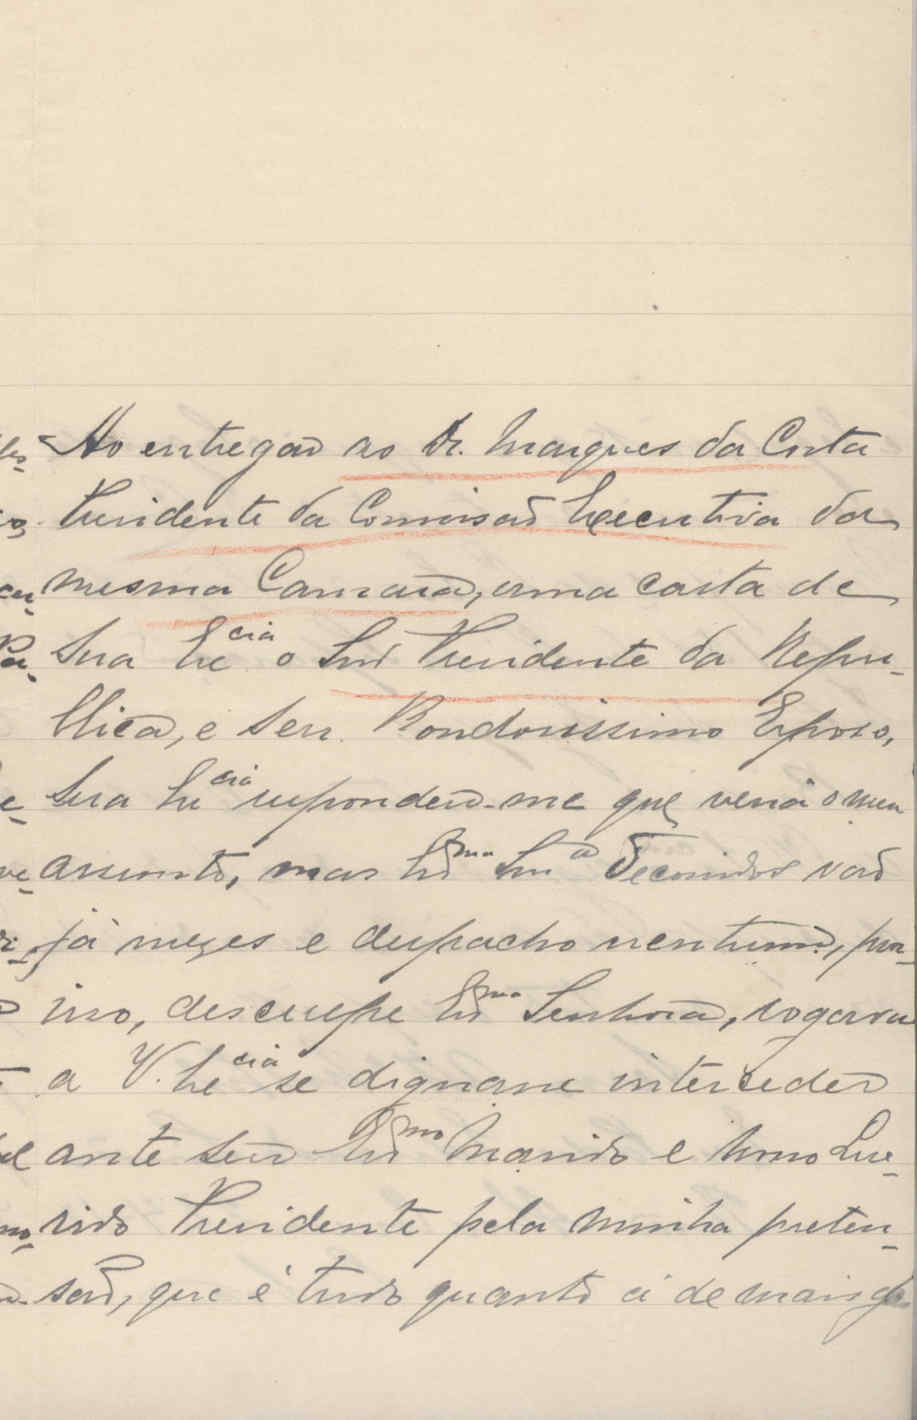 Ao entregar ao Dr. Marques da Costa
Presidente da Comissão Executiva da
mesma Camara, uma carta de
Sua Excia o Snr Presidente da Repu-
blica, e seu Bondosissimo Esposo,
Sua Excia respondeu-me que veria o meu
assumto, mas Exma Snra decorridos vão
já mezes e despacho nenhum, por
isso, desculpe Exma Senhora, rogava
a V. Excia se dignasse interceder
ante seu Exmo Marido e nosso Que-
rido Presidente pela minha preten-
são, que é tudo quanto á de mais